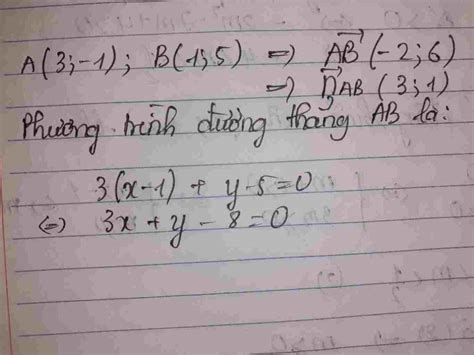 A(3;-1); B(1;5) => AB→(-2;6)
=> n→AB (3;1)
Phương trình đường thẳng AB là:
3(x-1) + y-5=0
<=> 3x + y - 8 = 0